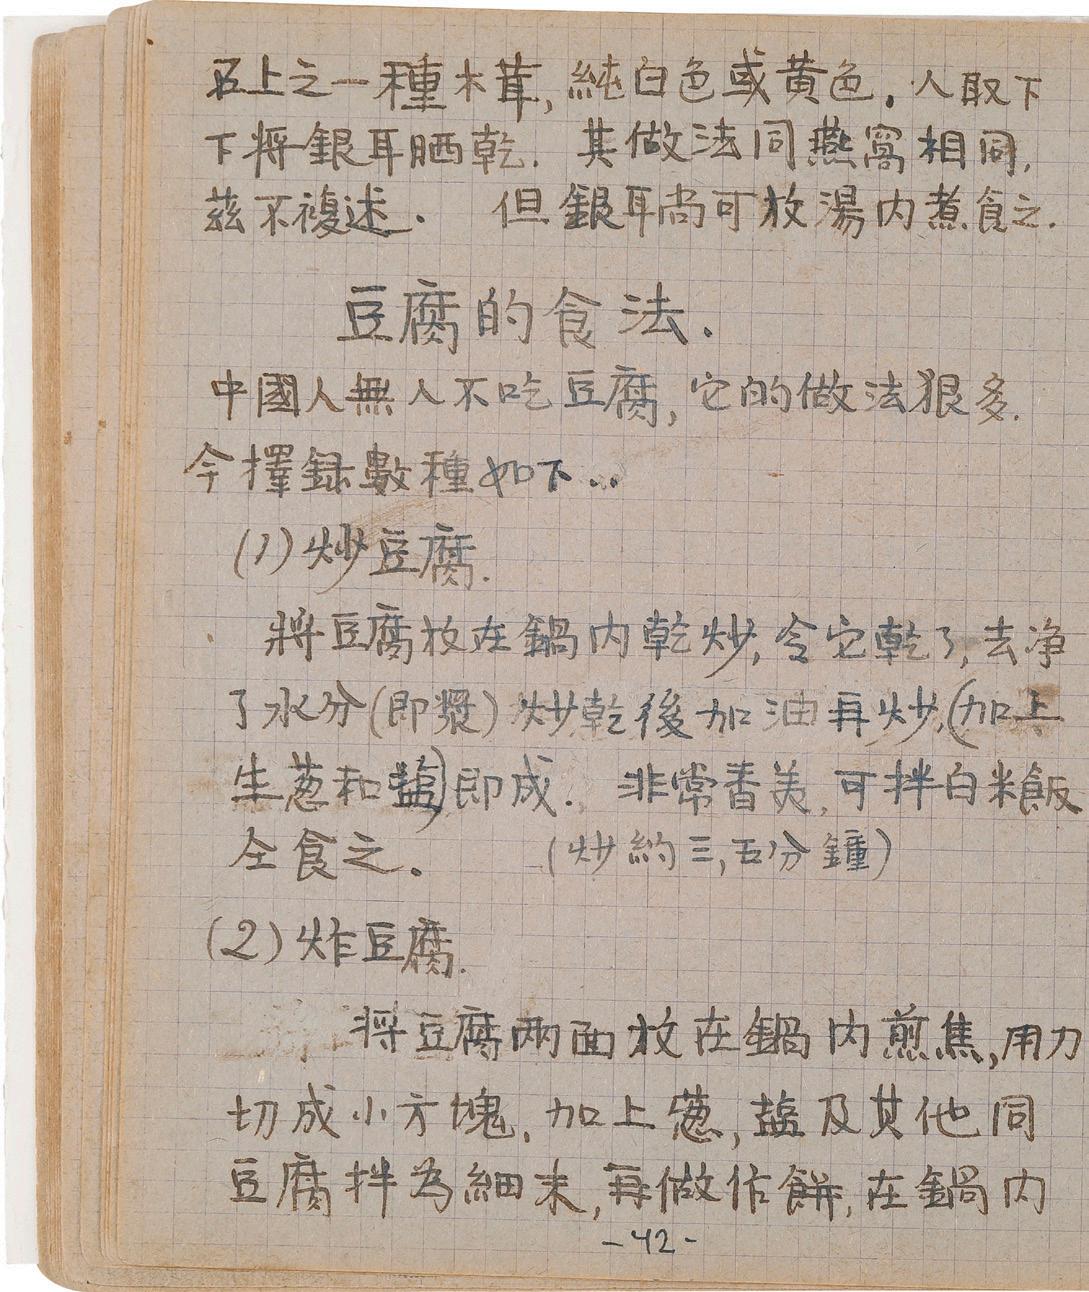 石上之一種木茸,純白色或黃色.人取下
下將銀耳晒乾.其做法同燕窩相同,
茲不複述.但銀耳尚可放湯内煮食之.
豆腐的食法.
中國人無人不吃豆腐,它的做法狠多.
今擇録數種如下..
(1)炒豆腐.
將豆腐放在鍋内乾炒,令它乾了,去净
了水分(即漿)炒乾後加油再炒,(加上
生葱和塩)即成.非常香美,可拌白米飯
仝食之.(炒約三,五分鐘)
(2)炸豆腐.
將豆腐兩面放在鍋内煎焦,用力
切成小方塊,加上葱,塩及其他同
豆腐拌為細末,再做作餅,在鍋内
-42-